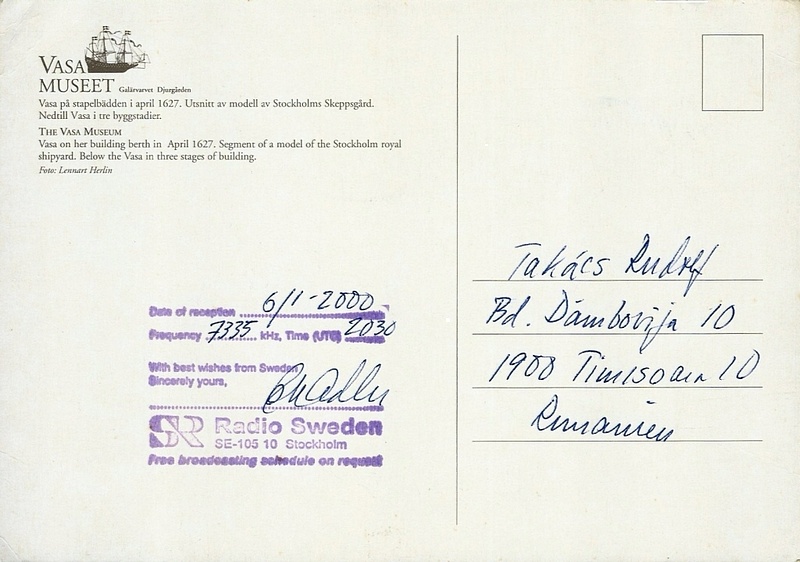 VASA
MUSEET Galärvarvet Djurgården
Vasa på stapelbädden i april 1627. Utsnitt av modell av Stockholms Skeppsgård.
Nedtill Vasa i tre byggstadier.
THE VASA MUSEUM
Vasa on her building berth in April 1627. Segment of a model of the Stockholm royal
shipyard. Below the Vasa in three stages of building.
Foto: Lennart Herlin
Date of reception 6/1-2000
Frequency 7335 kHz, Time (UTC) 2030
With best wishes from Sweden
Sincerely yours,
SR Radio Sweden
SE-105 10 Stockholm
Free broadcasting schedule on request
Takács Rudolf
Bd. Dâmbovija 10
1900 Timisoara 10
Rumänien